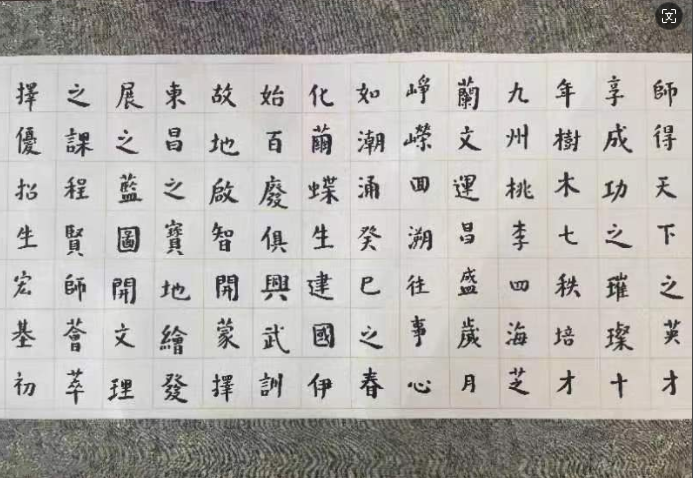 師得天下之英才
享成功之璀璨十
年樹木七秩培才
九州桃李四海芝
蘭文運昌盛歲月
崢嶸回溯往事心
如潮涌癸巳之春
化繭蝶生建國伊
始百廢俱興武訓
故地啟智開蒙擇
東昌之寶地繪發
展之藍圖開文理
之課程賢師薈萃
擇優招生宏基初